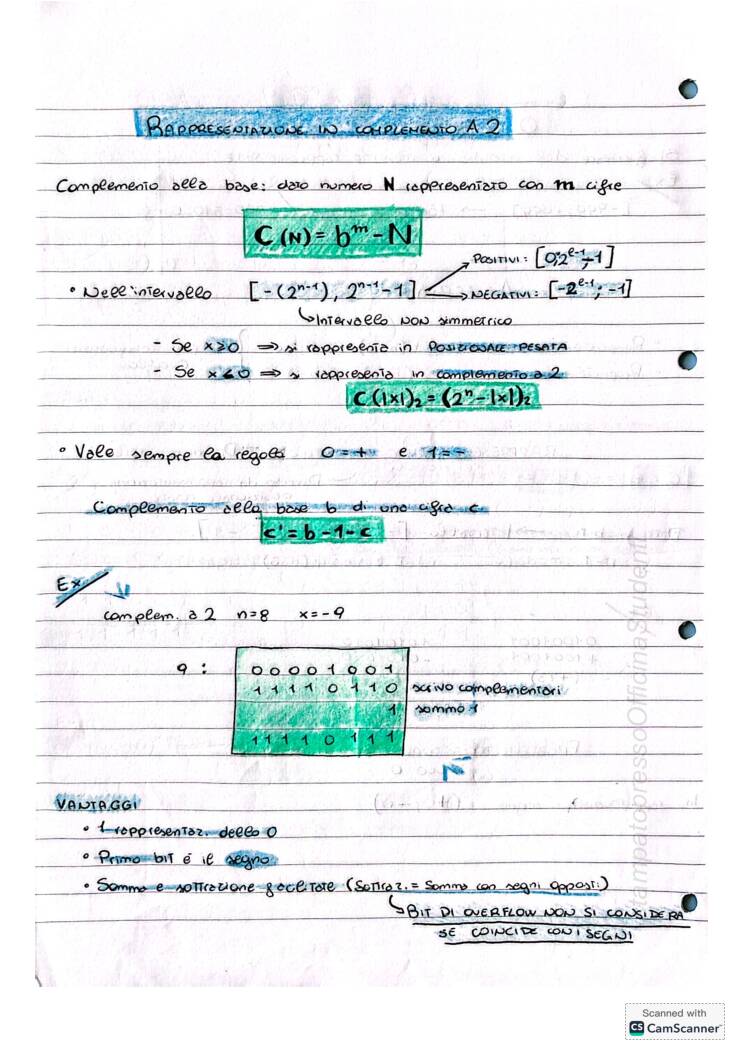 RAPPRESENTAZIONE IN COMPLEMENTO A 2
Complemento alla base: dato numero N rappresentato con m cifre
C (N) = b^m - N
• Nell'intervallo [-(2^{n-1}), 2^{n-1}-1] → POSITIVI: [0; 2^{e-1}-1]
→ NEGATIVI: [-2^{e-1}; -1]
↳ Intervallo NON simmetrico
- Se x≥0 ⇒ si rappresenta in POSIZIONALE PESATA
- Se x<0 ⇒ si rappresenta in complemento a 2
C(|x|)₂ = (2^n - |x|)₂
• Vale sempre la regola 0=+ e 1=-
Complemento alla base b di una cifra c
c' = b - 1 - c
Ex
complem. a 2 n=8 x=-9
9: 0 0 0 0 1 0 0 1
1 1 1 1 0 1 1 0 scrivo complementari
1 sommo 1
1 1 1 1 0 1 1 1
VANTAGGI
• 1 rappresentaz. dello 0
• Primo bit è il segno
• Somma e sottrazione facilitate (Sottraz. = Somma con segni opposti)
↳ BIT DI OVERFLOW NON SI CONSIDERA
SE COINCIDE CON I SEGNI
StampatopressoOfficinaStudenti
Scanned with
CS CamScanner